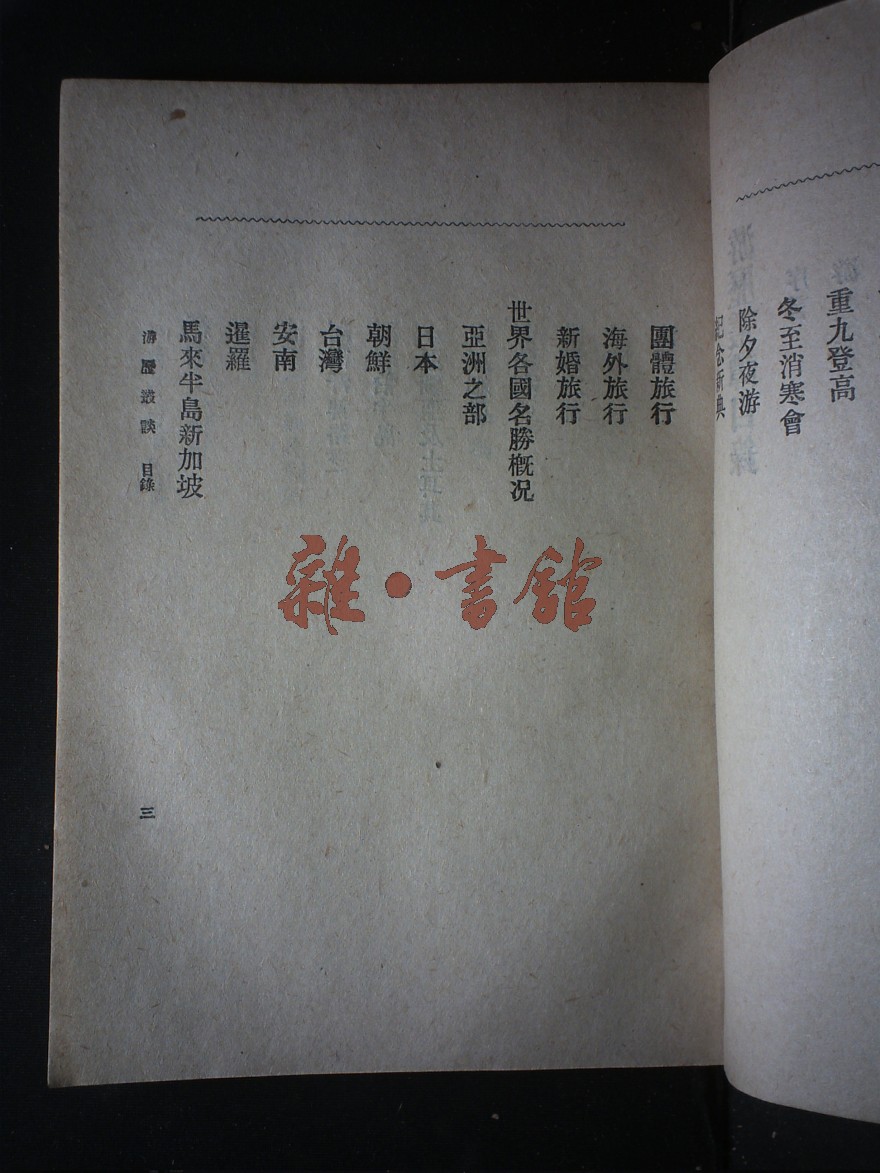 重九登高
冬至消寒會
除夕夜游
紀念新典
團體旅行
海外旅行
新婚旅行
世界各國名勝槪况
亞洲之部
日本
朝鮮
台灣
安南
暹羅
馬來半島新加坡
游歷叢談 目錄
三
雜·書館